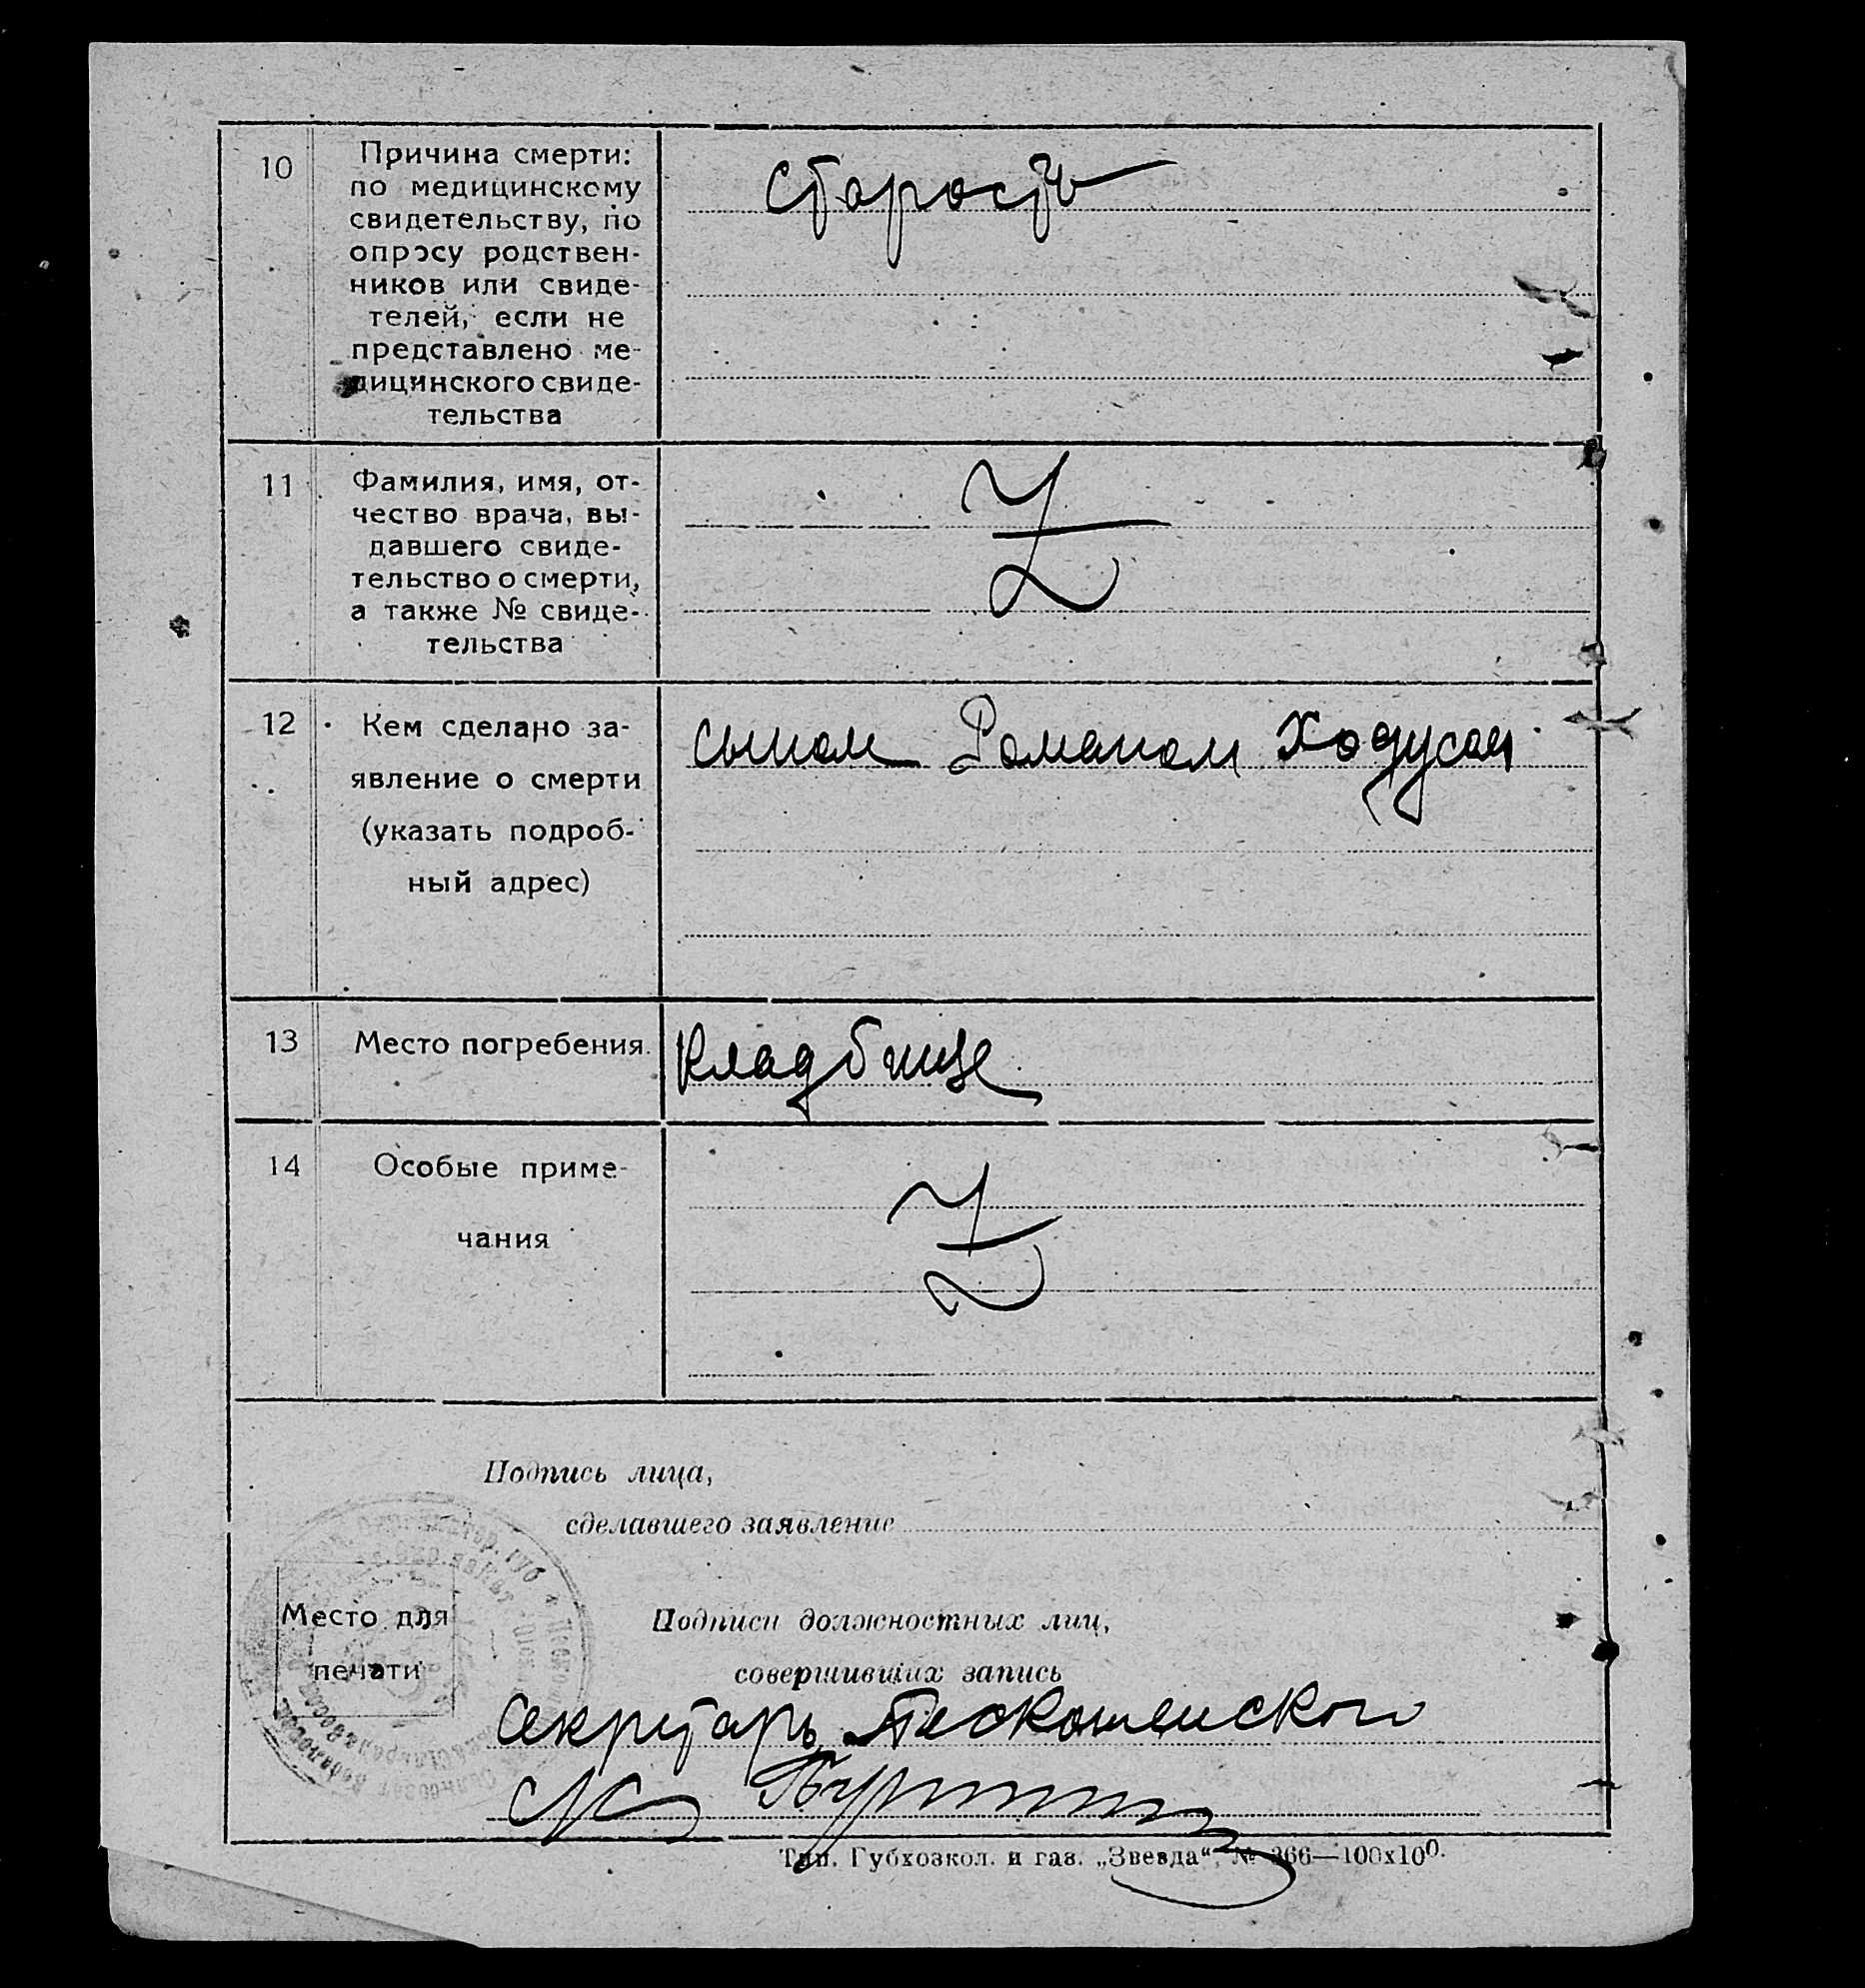 10
Причина смерти:
по медицинскому
свидетельству, по
опросу родствен-
ников или свиде-
телей, если не
представлено ме-
дицинского свиде-
тельства
Старость
11
Фамилия, имя, от-
чество врача, вы-
давшего свиде-
тельство о смерти,
а также № свиде-
тельства
Z
12
Кем сделано за-
явление о смерти
(указать подроб-
ный адрес)
сыном Романом Ходусом
13
Место погребения.
Кладбище
14
Особые приме-
чания
Z
Подпись лица,
сделавшего заявление
Место для
печати
Подписи должностных лиц,
совершивших запись
Секретарь
Тип. Губхозкол. и газ. „Звезда“, № 366—100х100.